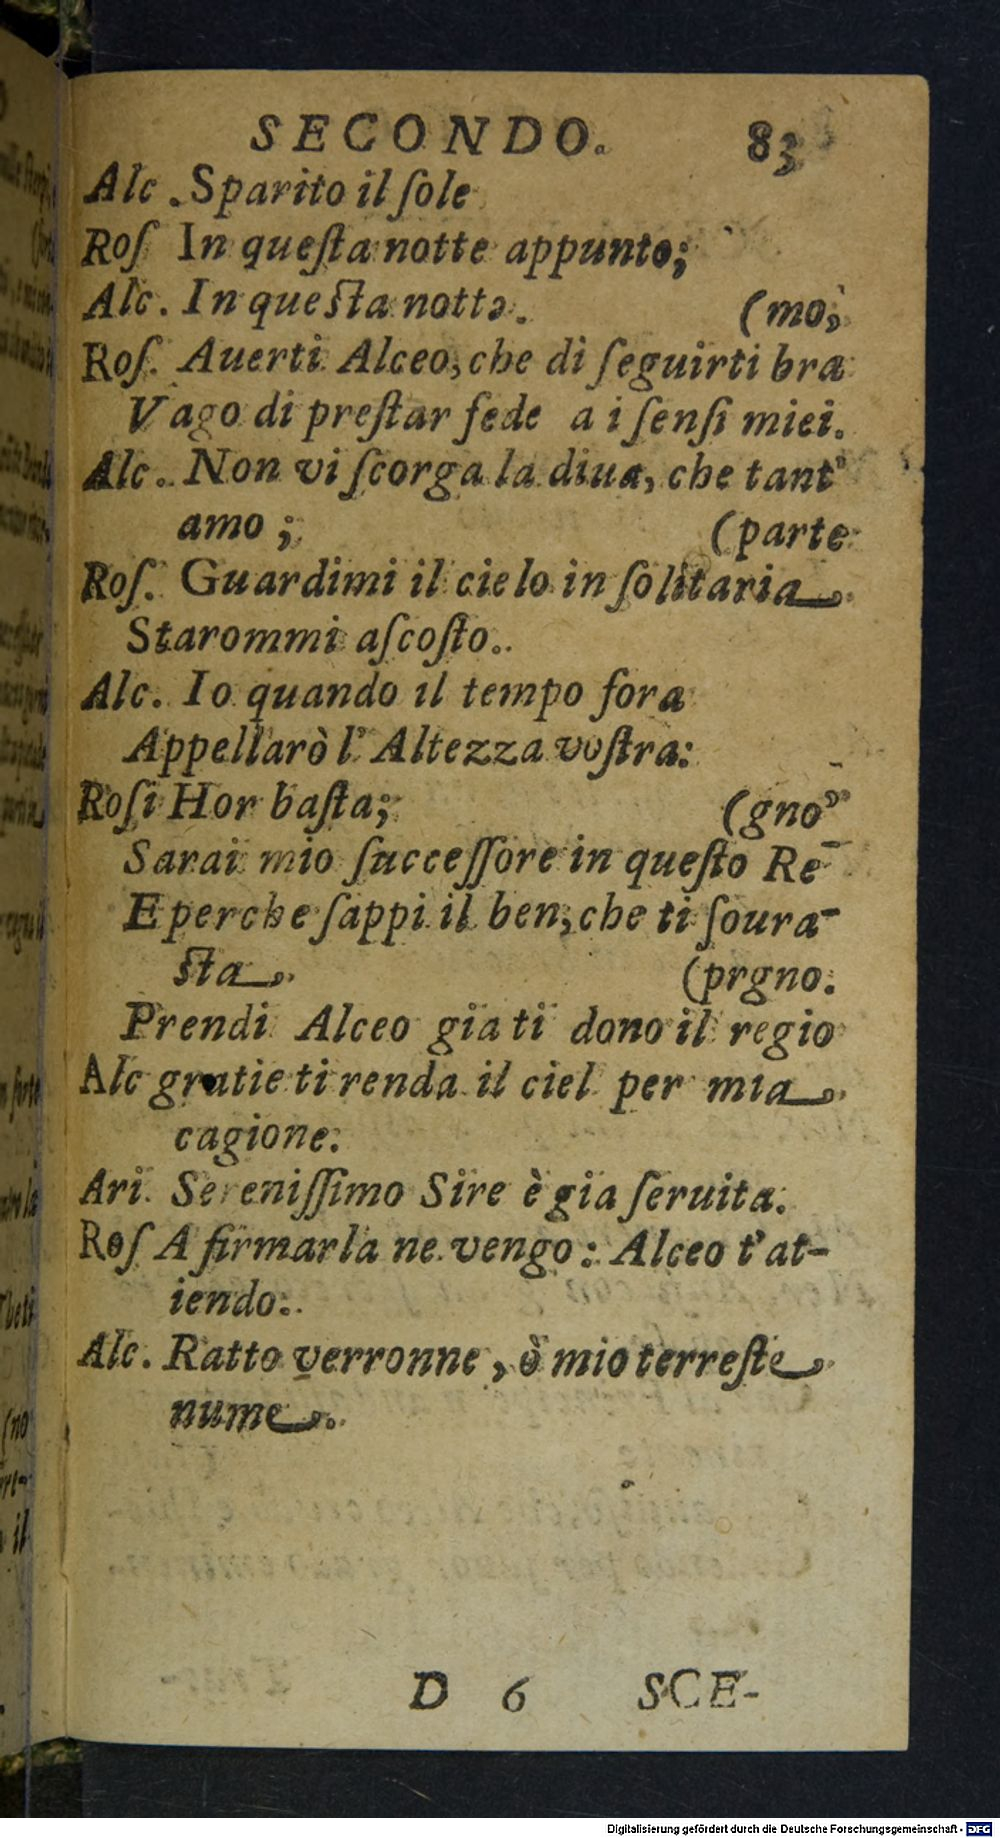 SECONDO. 83
Alc. Sparito il ſole
Roſ In queſta notte appunto;
Alc. In queſta notte. (mo;
Roſ. Auerti Alceo, che di ſeguirti bra
Vago di preſtar fede a i ſenſi miei.
Alc. Non vi ſcorga la diua, che tant'
amo; (parte
Roſ. Guardimi il cielo in ſolitaria
Starommi aſcoſto..
Alc. Io quando il tempo fora
Appellarò l' Altezza voſtra:
Roſi Hor baſta; (gno
Sarai mio ſucceſſore in queſto Re-
E perche ſappi il ben, che ti ſoura-
ſta. (prgno.
Prendi Alceo gia ti dono il regio
Alc gratie ti renda il ciel per mia
cagione.
Ari. Sereniſſimo Sire è gia ſeruita.
Roſ A firmarla ne vengo: Alceo t'at-
iendo.
Alc. Ratto verronne, ò mio terreſte
nume.
D 6 SCE-
Digitalisierung gefördert durch die Deutsche Forschungsgemeinschaft - DFG